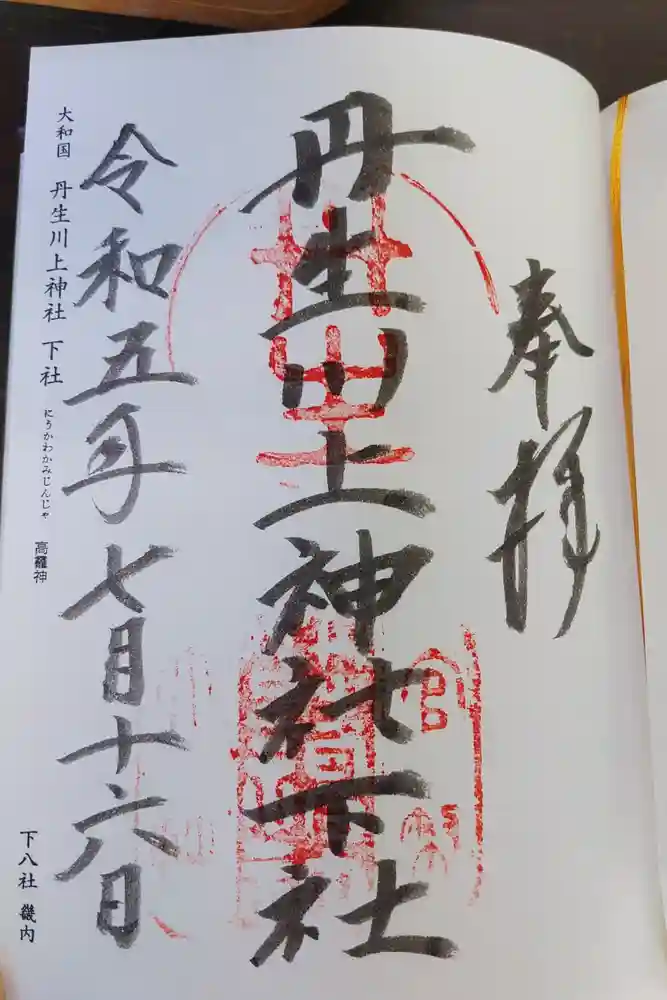 奉拝
丹生川上神社下社
令和五年七月十六日
大和国 丹生川上神社 下社 にうかわかみじんじゃ 高龗神
下八社 畿内